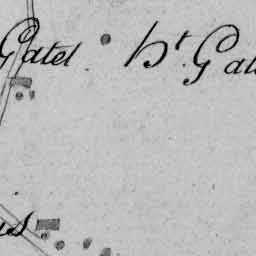 Gatel ht. Gat
us